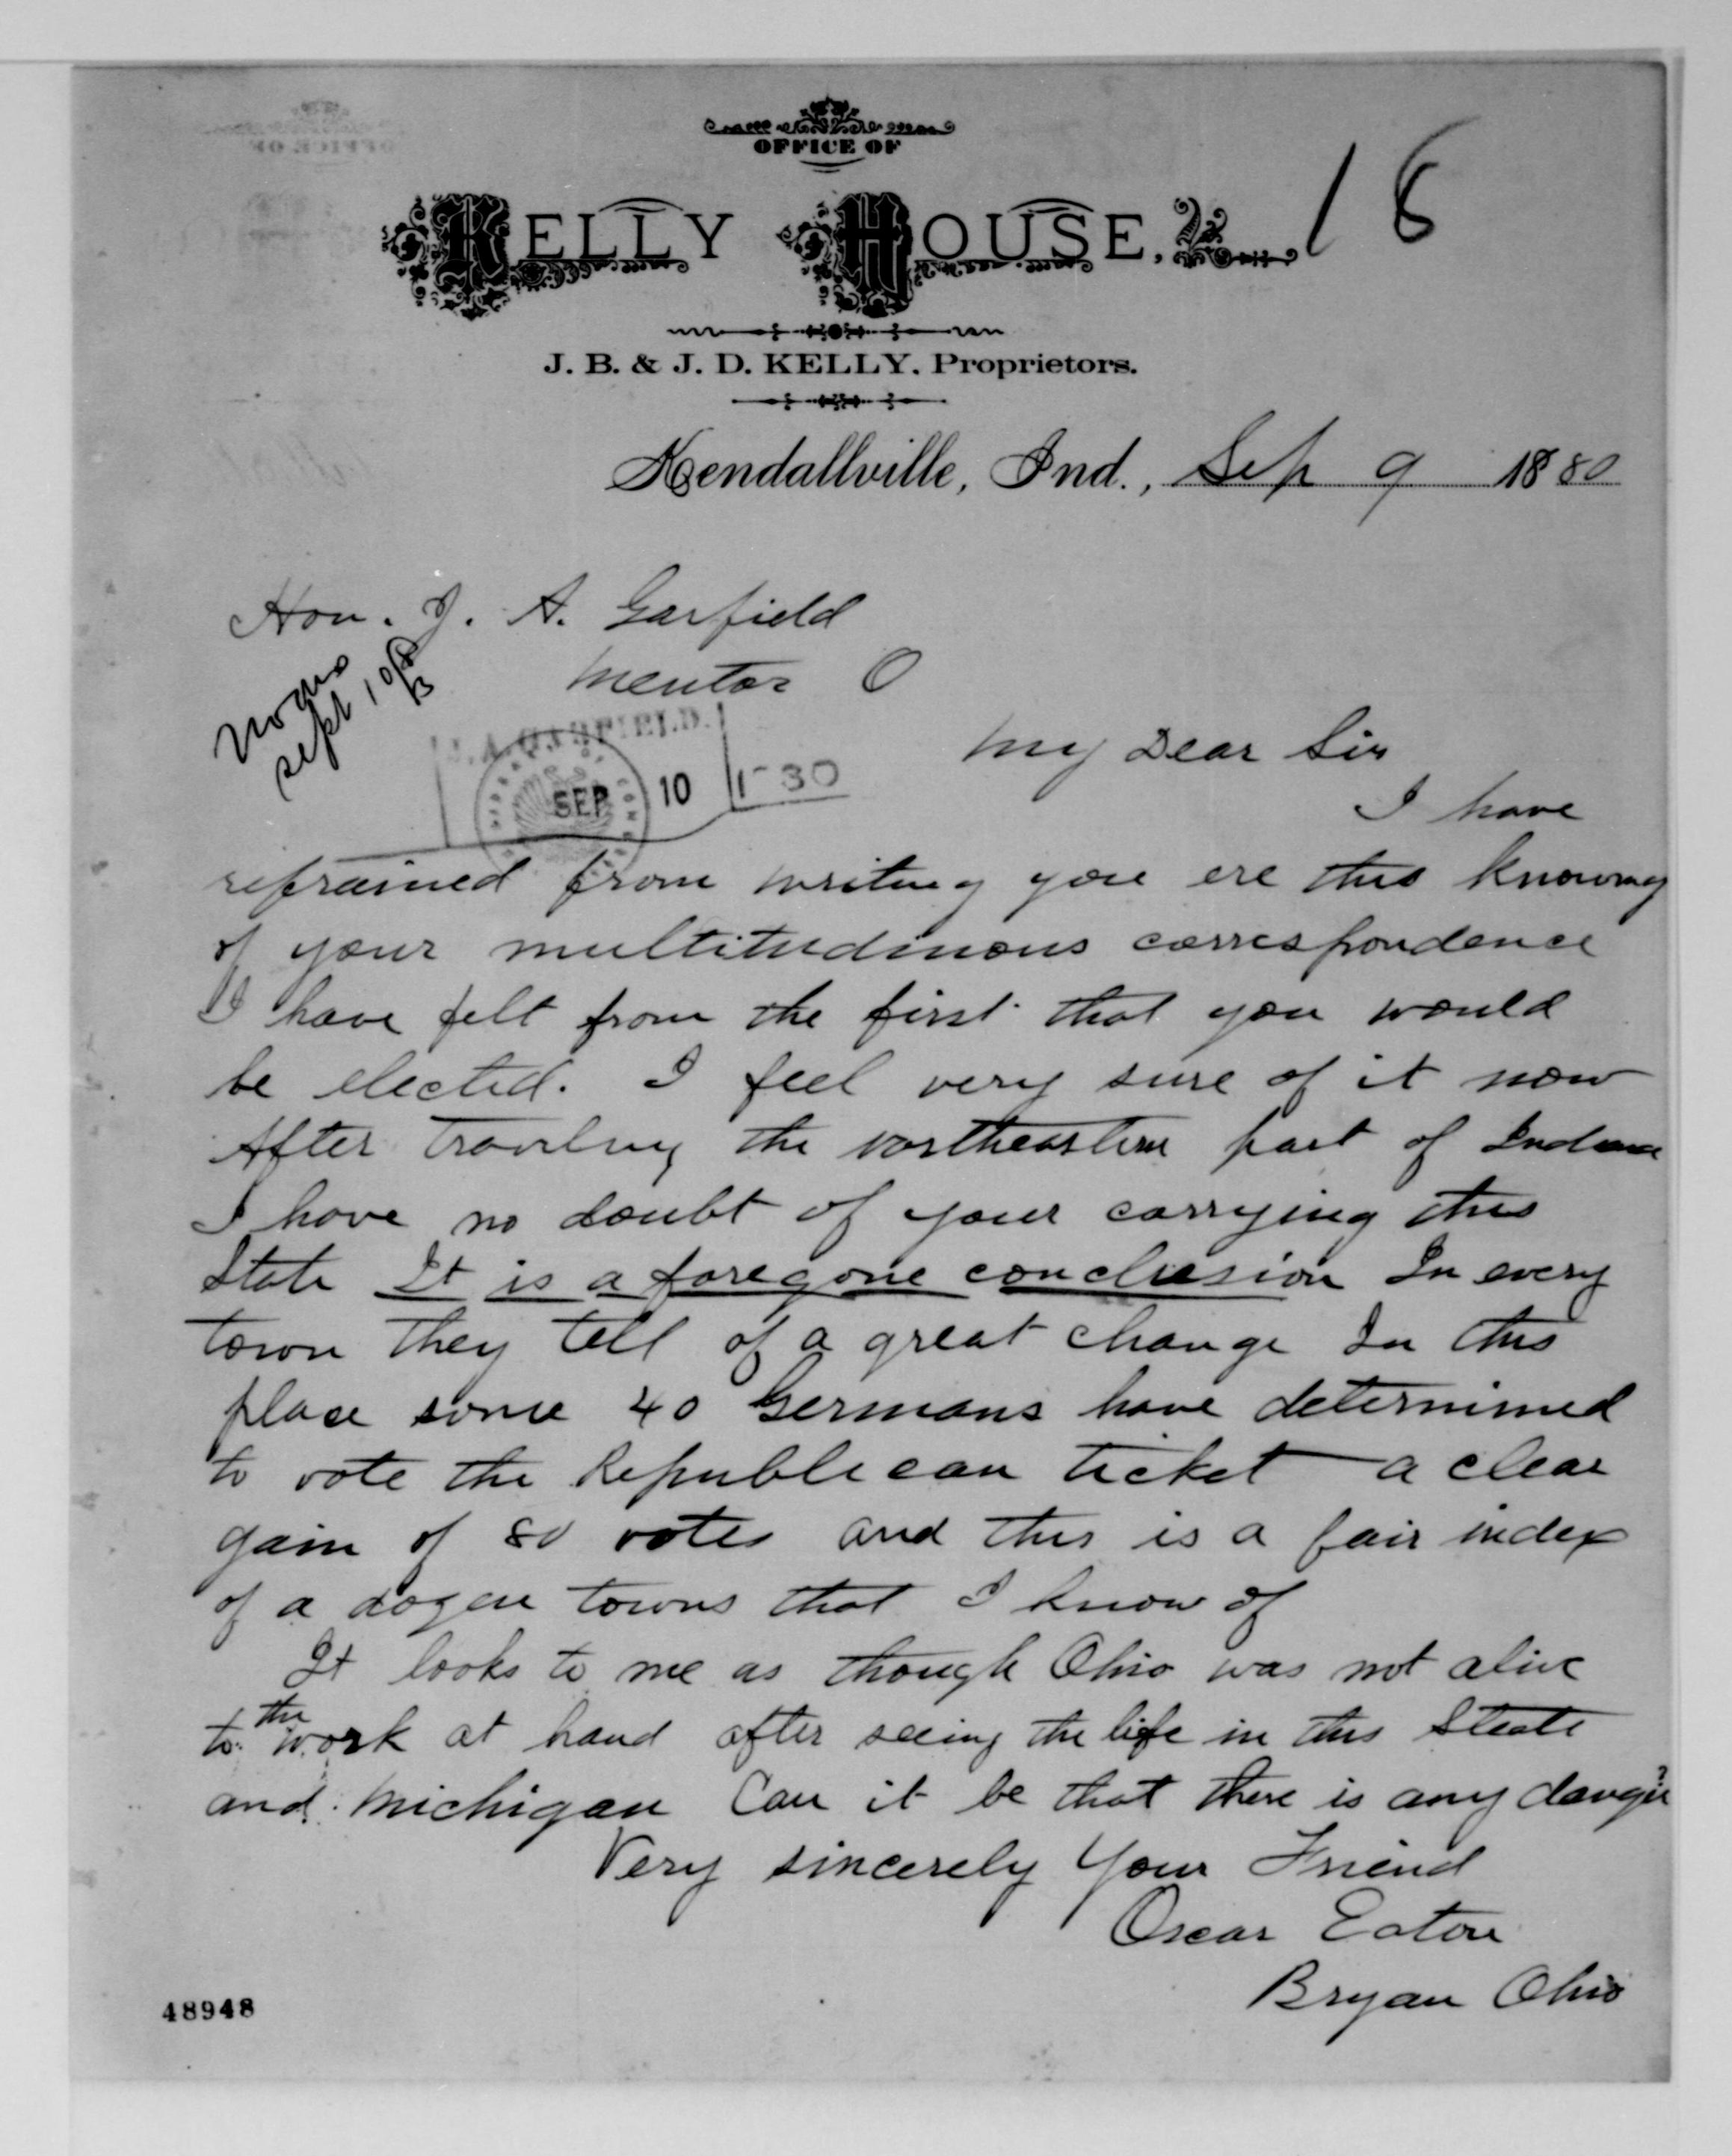 OFFICE OF
KELLY HOUSE,
18
J. B. & J. D. KELLY. Proprietors.
Kendallville, Ind., Sep 9 1880
Hon. J. A. Garfield
Mentor O
No ans
Sept 10/80
J. A. GARFIELD.
SEP 10 1880
My Dear Sir
I have
refrained from writing you ere this knowing
of your multitudinous correspondence
I have felt from the first that you would
be elected. I feel very sure of it now
After traveling the northeastern part of Indiana
I have no doubt of your carrying this
State It is a foregone conclusion In every
town they tell of a great change In this
place some 40 Germans have determined
to vote the Republican ticket — a clear
gain of 80 votes and this is a fair index
of a dozen towns that I know of
It looks to me as though Ohio was not alive
to the work at hand after seeing the life in this State
and Michigan Can it be that there is any danger?
Very sincerely Your Friend
Oscar Eaton
Bryan Ohio
48948